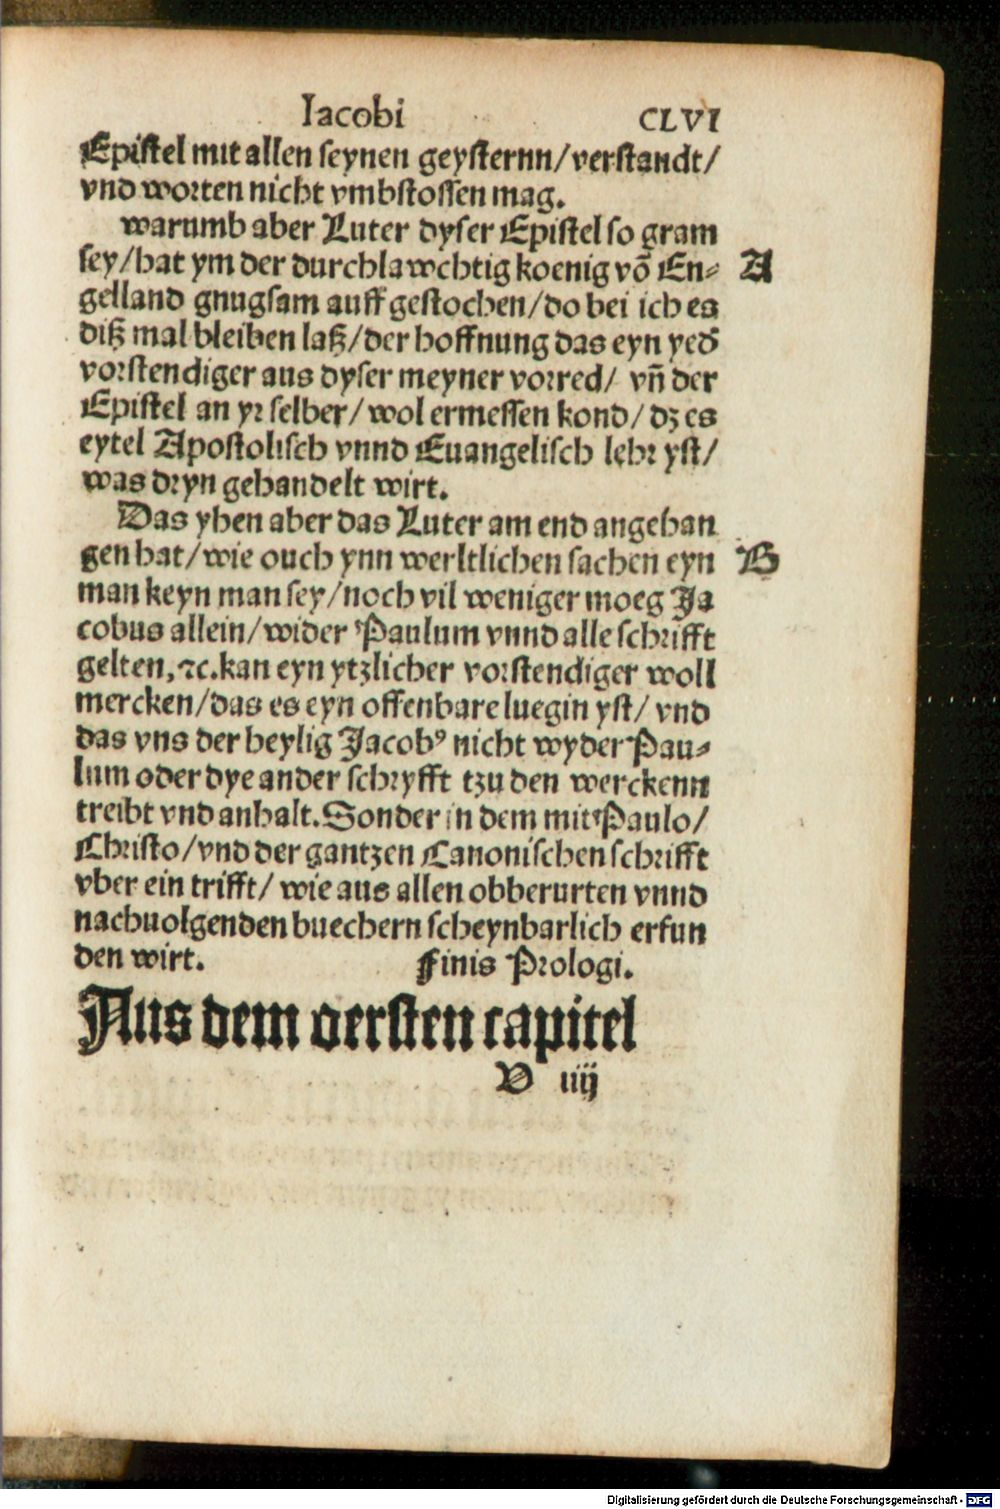 Iacobi CLVI
Epistel mit allen seynen geysternn/verstandt/
vnd worten nicht vmbstossen mag.
warumb aber Luter dyser Epistel so gram
sey/hat ym der durchlawchtig koenig võ En⸗ A
gelland gnugsam auff gestochen/do bei ich es
diß mal bleiben laß/der hoffnung das eyn yed̕
vorstendiger aus dyser meyner vorred/ vñ der
Epistel an yr selber/wol ermessen kond/dz es
eytel Apostolisch vnnd Euangelisch lehr yst/
was dryn gehandelt wirt.
Das yhen aber das Luter am end angehan
gen hat/wie ouch ynn werltlichen sachen eyn B
man keyn man sey/noch vil weniger moeg Ja
cobus allein/wider Paulum vnnd alle schrifft
gelten,⁊c.kan eyn ytzlicher vorstendiger woll
mercken/das es eyn offenbare luegin yst/ vnd
das vns der heylig Jacobꝰ nicht wyder Pau⸗
lum oder dye ander schryfft tzu den werckenn
treibt vnd anhalt. Sonder in dem mit Paulo/
Christo/vnd der gantzen Canonischen schrifft
vber ein trifft/ wie aus allen obberurten vnnd
nachuolgenden buechern scheynbarlich erfun
den wirt. Finis Prologi.
Aus dem oersten capitel
V iiij
Digitalisierung gefördert durch die Deutsche Forschungsgemeinschaft - DFG